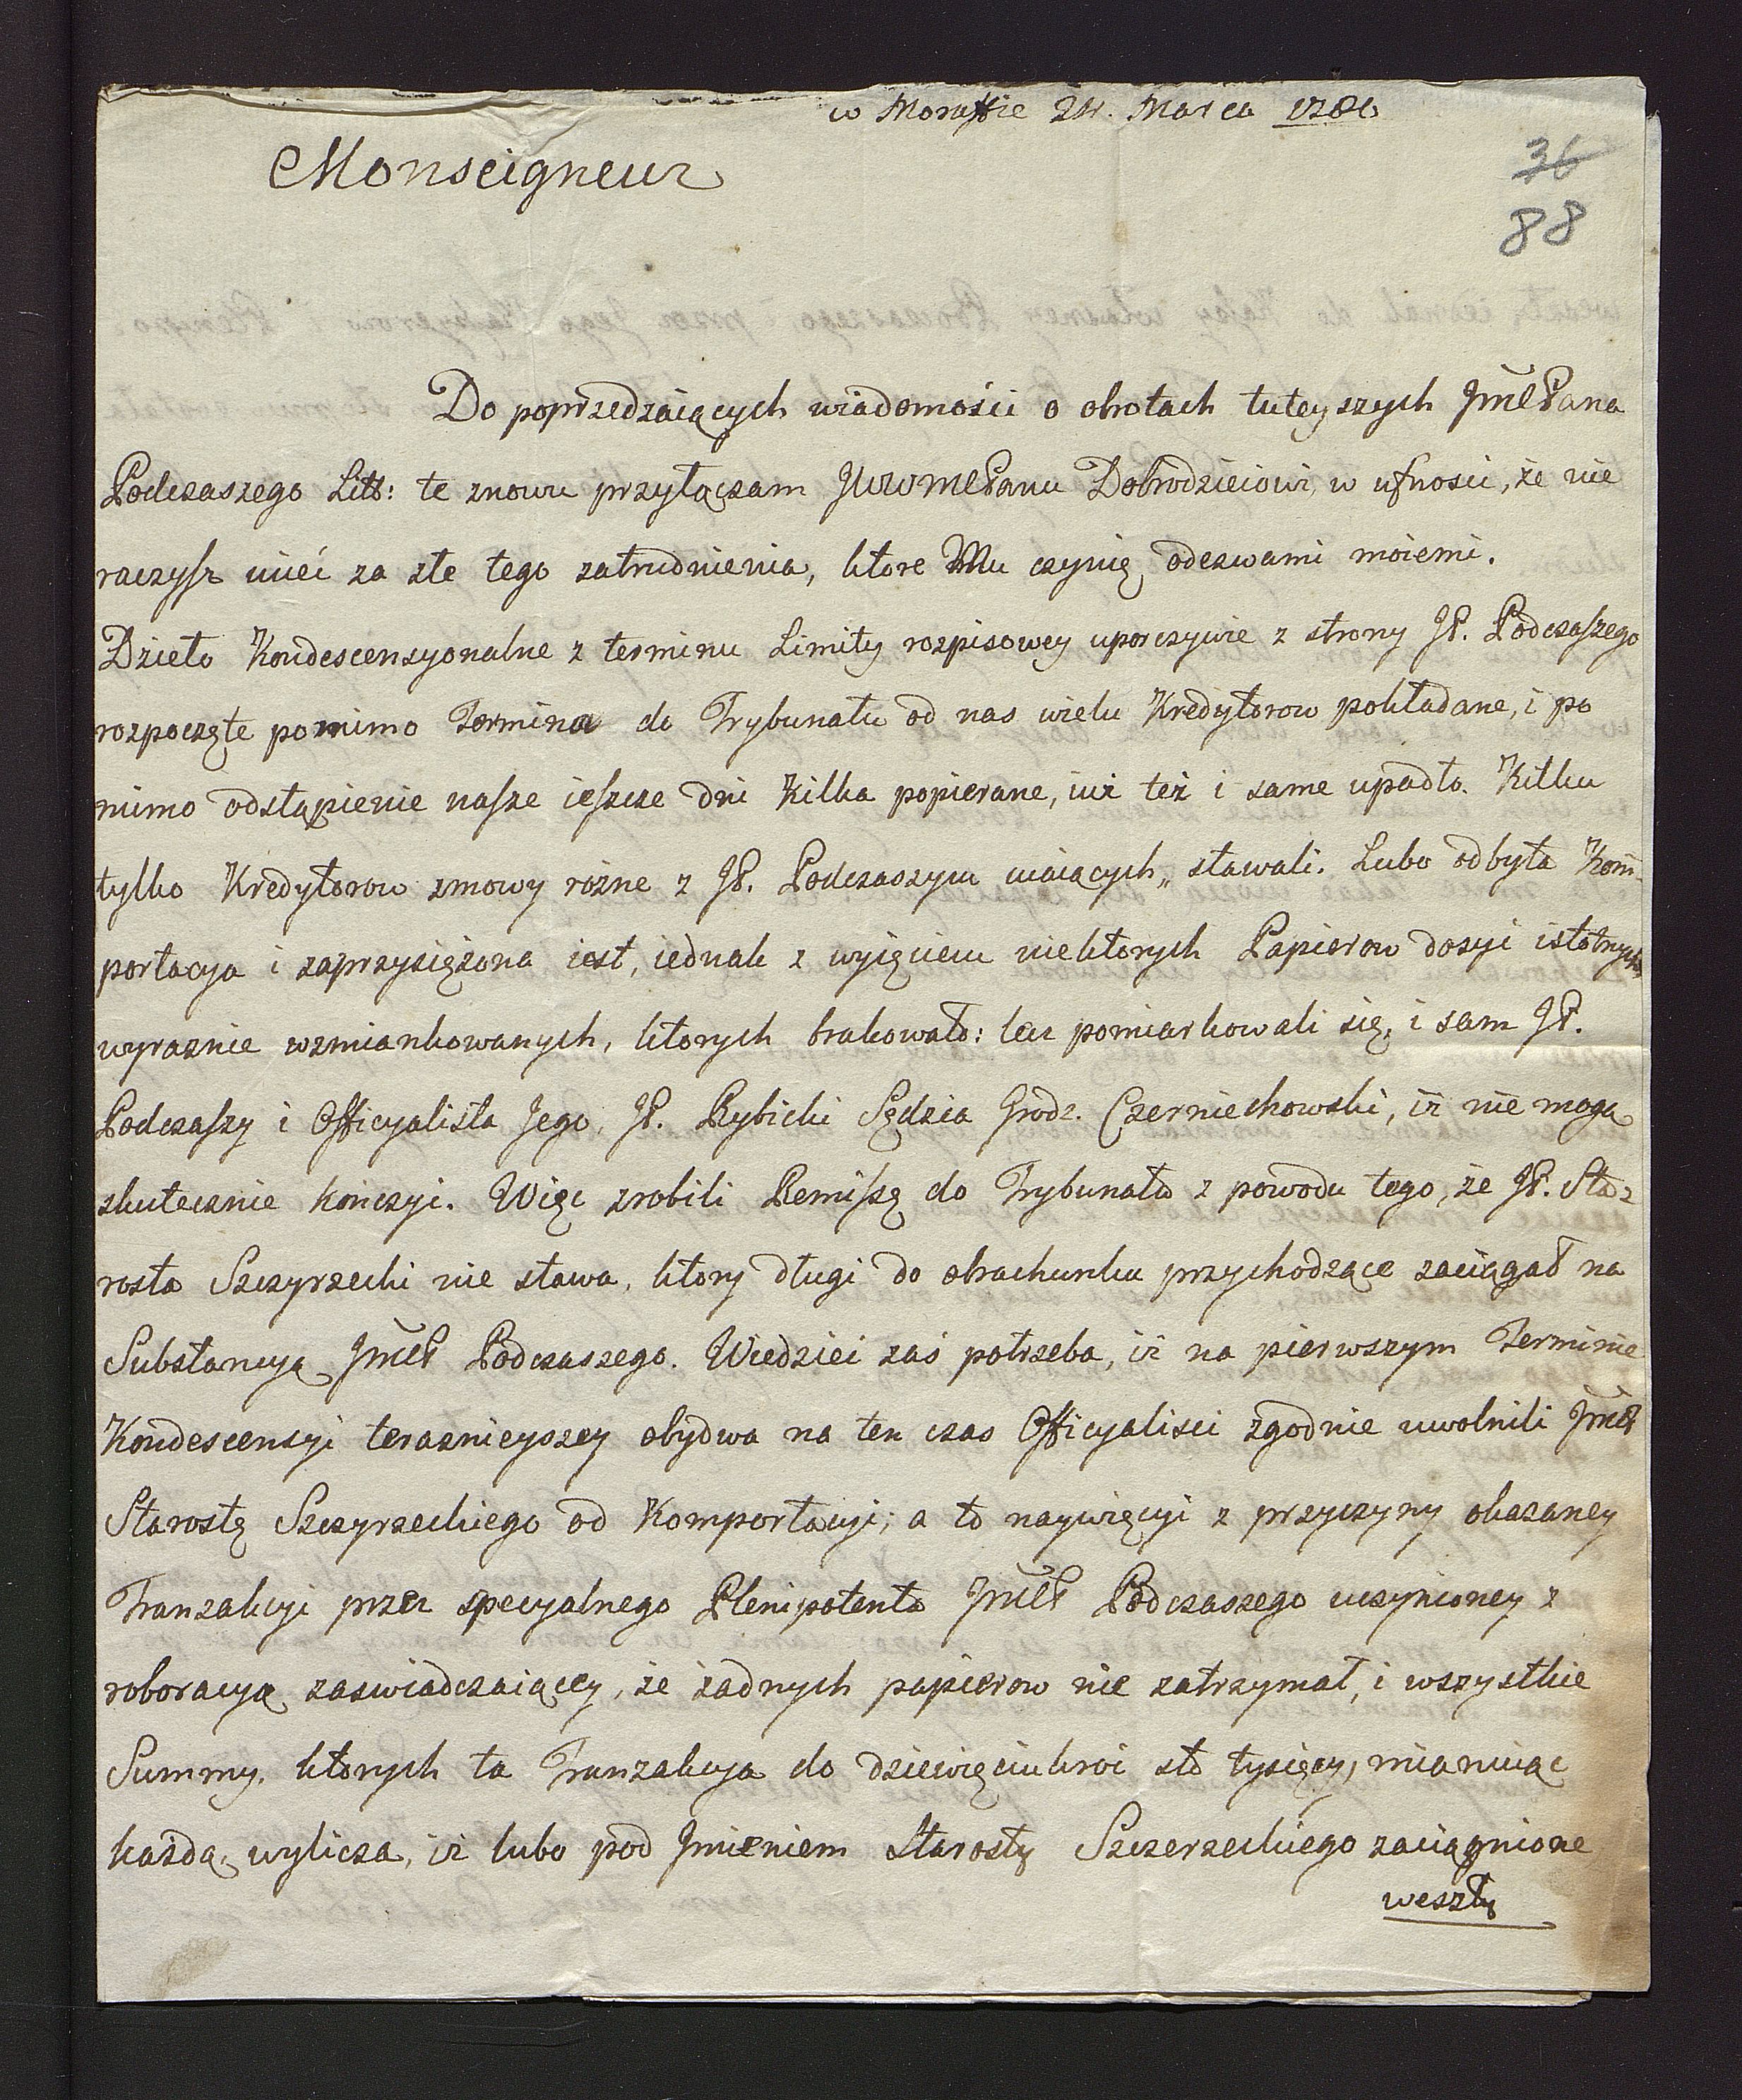 w Morafie 24. Marca 1786
Monseigneur
36
88
Do poprzedzaiących wiadomości o obrotach tuteyszych JmćPana
Podczaszego Litt: te znowu przyłączam JWWmćPanu Dobrodzieiowi, w ufności, że nie
raczysz mieć za złe tego zatrudnienia, ktore Mu czynię odezwami moiemi.
Dzieło Kondescensyonalne z terminu Limity rozpisowey uporczywie z strony JP. Podczaszego
rozpoczęte pomimo Termina do Trybunału od nas wielu Kredytorow pokładane, i po
mimo odstąpienie nasze ieszcze dni kilka popierane, iuż też i same upadło. Kilku
tylko Kredytorow zmowy rożne z JP. Podczaszym maiących„ stawali. Lubo odbyta Kom-
portacya i zaprzysiężona iest, iednak z wyięciem niektorych Papierow dosyć istotnych
wyraznie wzmiankowanych, ktorych brakowało: lecz pomiarkowali się, i sam JP.
Podczaszy i Officyalista Jego, JP. Rybicki Sędzia Grodz. Czerniechowski, iż nie mogą
skutecznie kończyć. Więc zrobili Remissę do Trybunału z powodu tego, że JP. Sta-
rosta Szczyrzecki nie stawa, ktory długi do obrachunku przychodzące zaciągał na
Substancyą JmćP Podczaszego. Wiedzieć zaś potrzeba, iż na pierwszym Terminie
Kondescensyi teraznieyszey obydwa na ten czas Officyalisci zgodnie uwolnili JmćP
Starostę Szczyrzeckiego od Komportacyi; a to naywięcyi z przyczyny okazaney
Tranzakcyi przez specyalnego Plenipotenta JmćP Podczaszego uczynioney z
roboracyą zaswiadczaiącey, że żadnych papierow nie zatrzymał, i wszystkie
Summy, ktorych ta Tranzakcya do dziewięciukroć sto tysięcy, mianuiąc
każdą, wylicza, iż lubo pod Jmieniem Starosty Szczerzeckiego zaciągnione
weszły